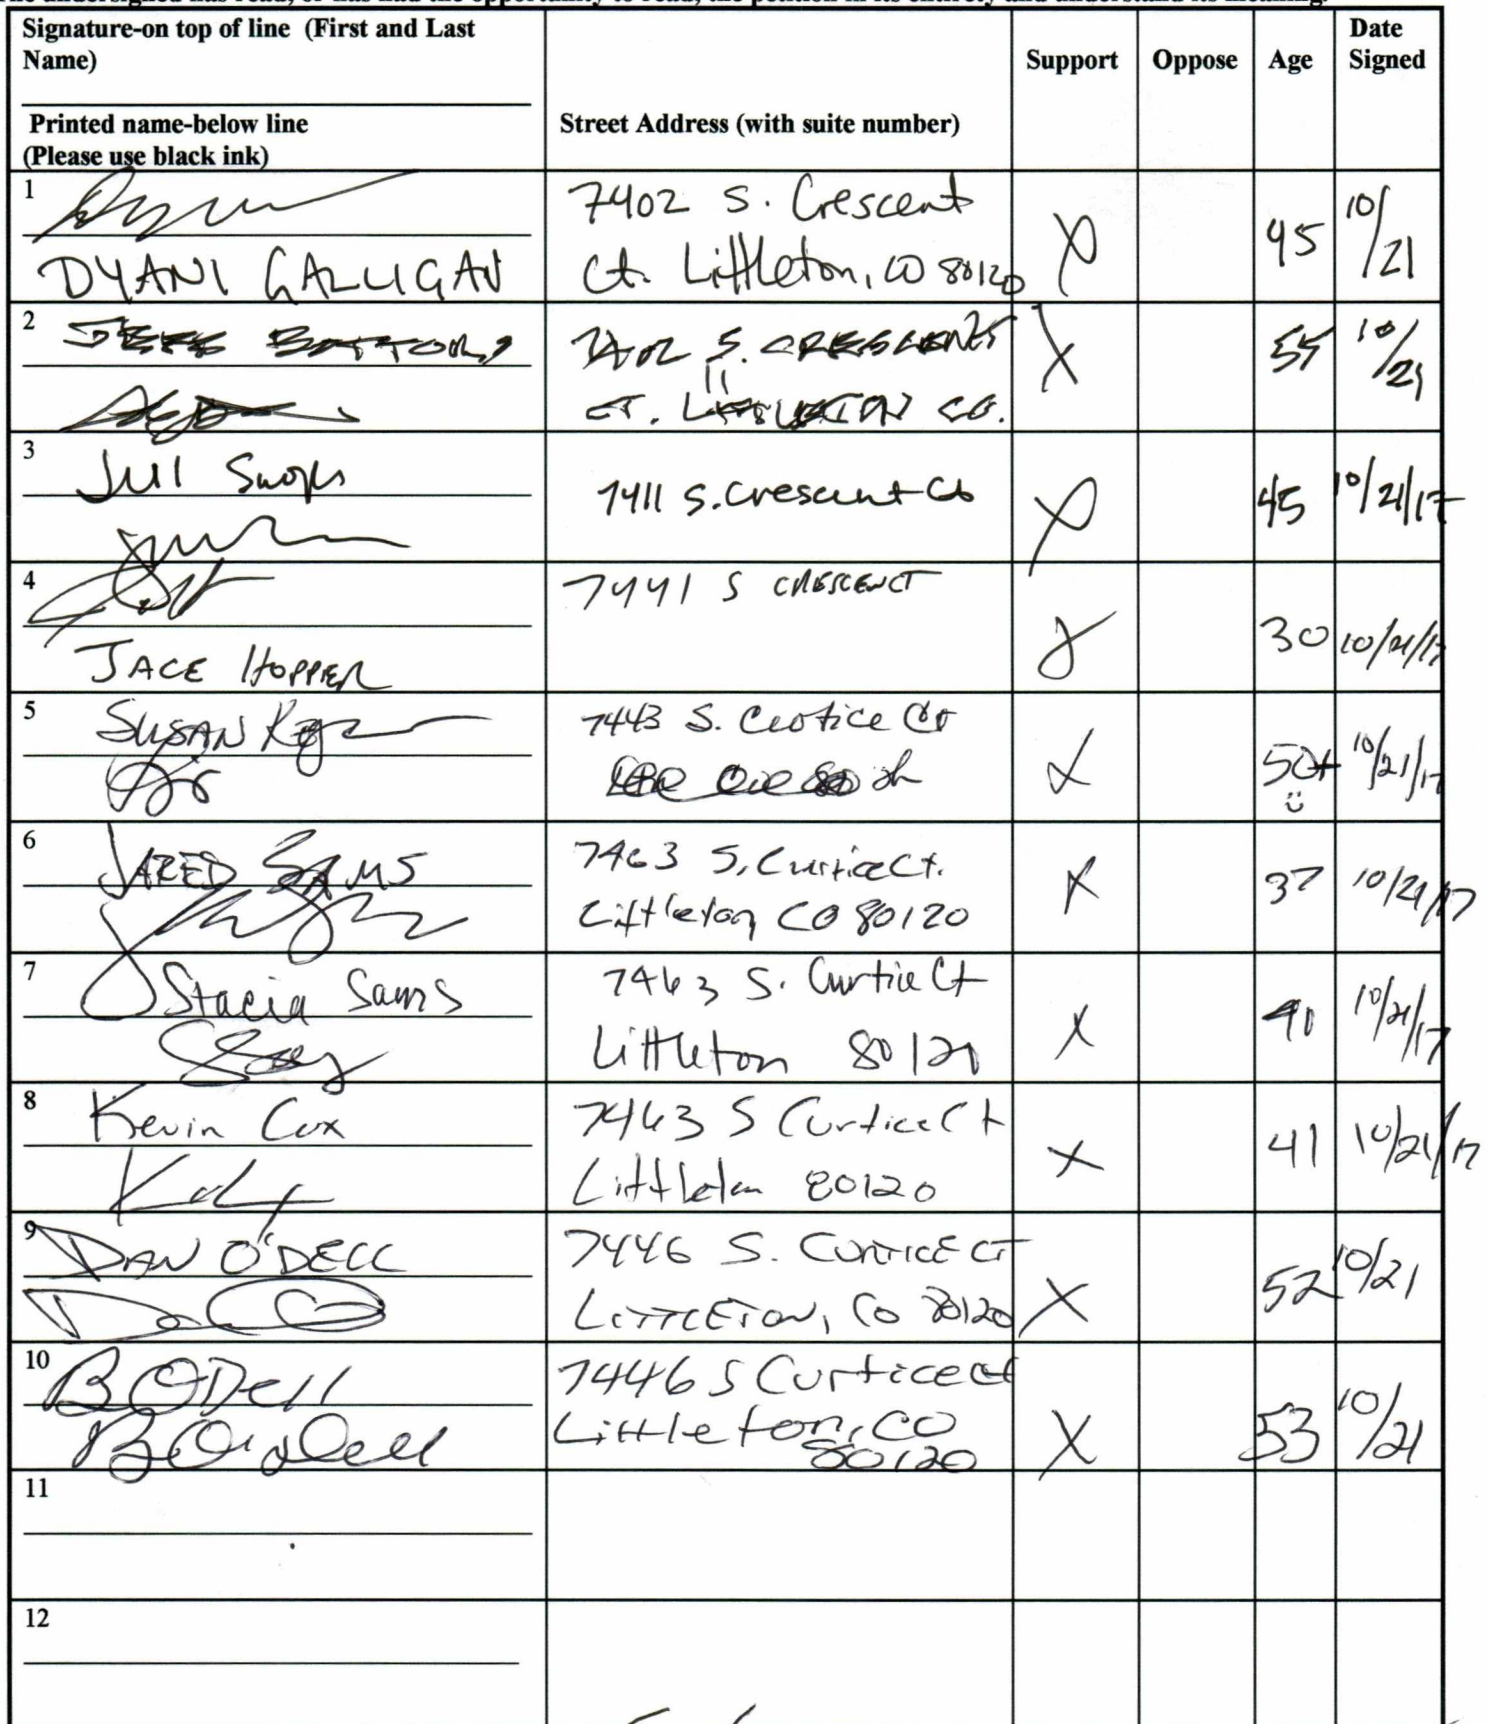 Signature-on top of line (First and Last
Name)
Printed name-below line
(Please use black ink)
Street Address (with suite number)
Support
Oppose
Age
Date
Signed
1
DYANI GALLIGAN
7402 S. Crescent
Ct. Littleton, CO 80120
X
45
10/
21
2
JEFF
7402 S. CRESCENT
CT. LITTLETON CO.
X
55
10/
21
3
Jill
7411 S. Crescent Ct
X
45
10/21/17
4
JACE HOPPER
7441 S CRESCENCT
X
30
10/21/17
5
SUSAN
7443 S. Ct
X
50+
10/21/17
6
JARED SAMS
7463 S. Curtice Ct.
Littleton CO 80120
X
37
10/21/17
7
Stacia Sams
7463 S. Curtice Ct
Littleton 80120
X
41
10/21/17
8
Kevin Cox
7463 S Curtice Ct
Littleton 80120
X
41
10/21/17
9
DAN O'DELL
7446 S. CURTICE CT
LITTLETON, CO 80120
X
52
10/21
10
B ODell
7446 S Curtice ct
Littleton, CO
80120
X
53
10/21
11
12